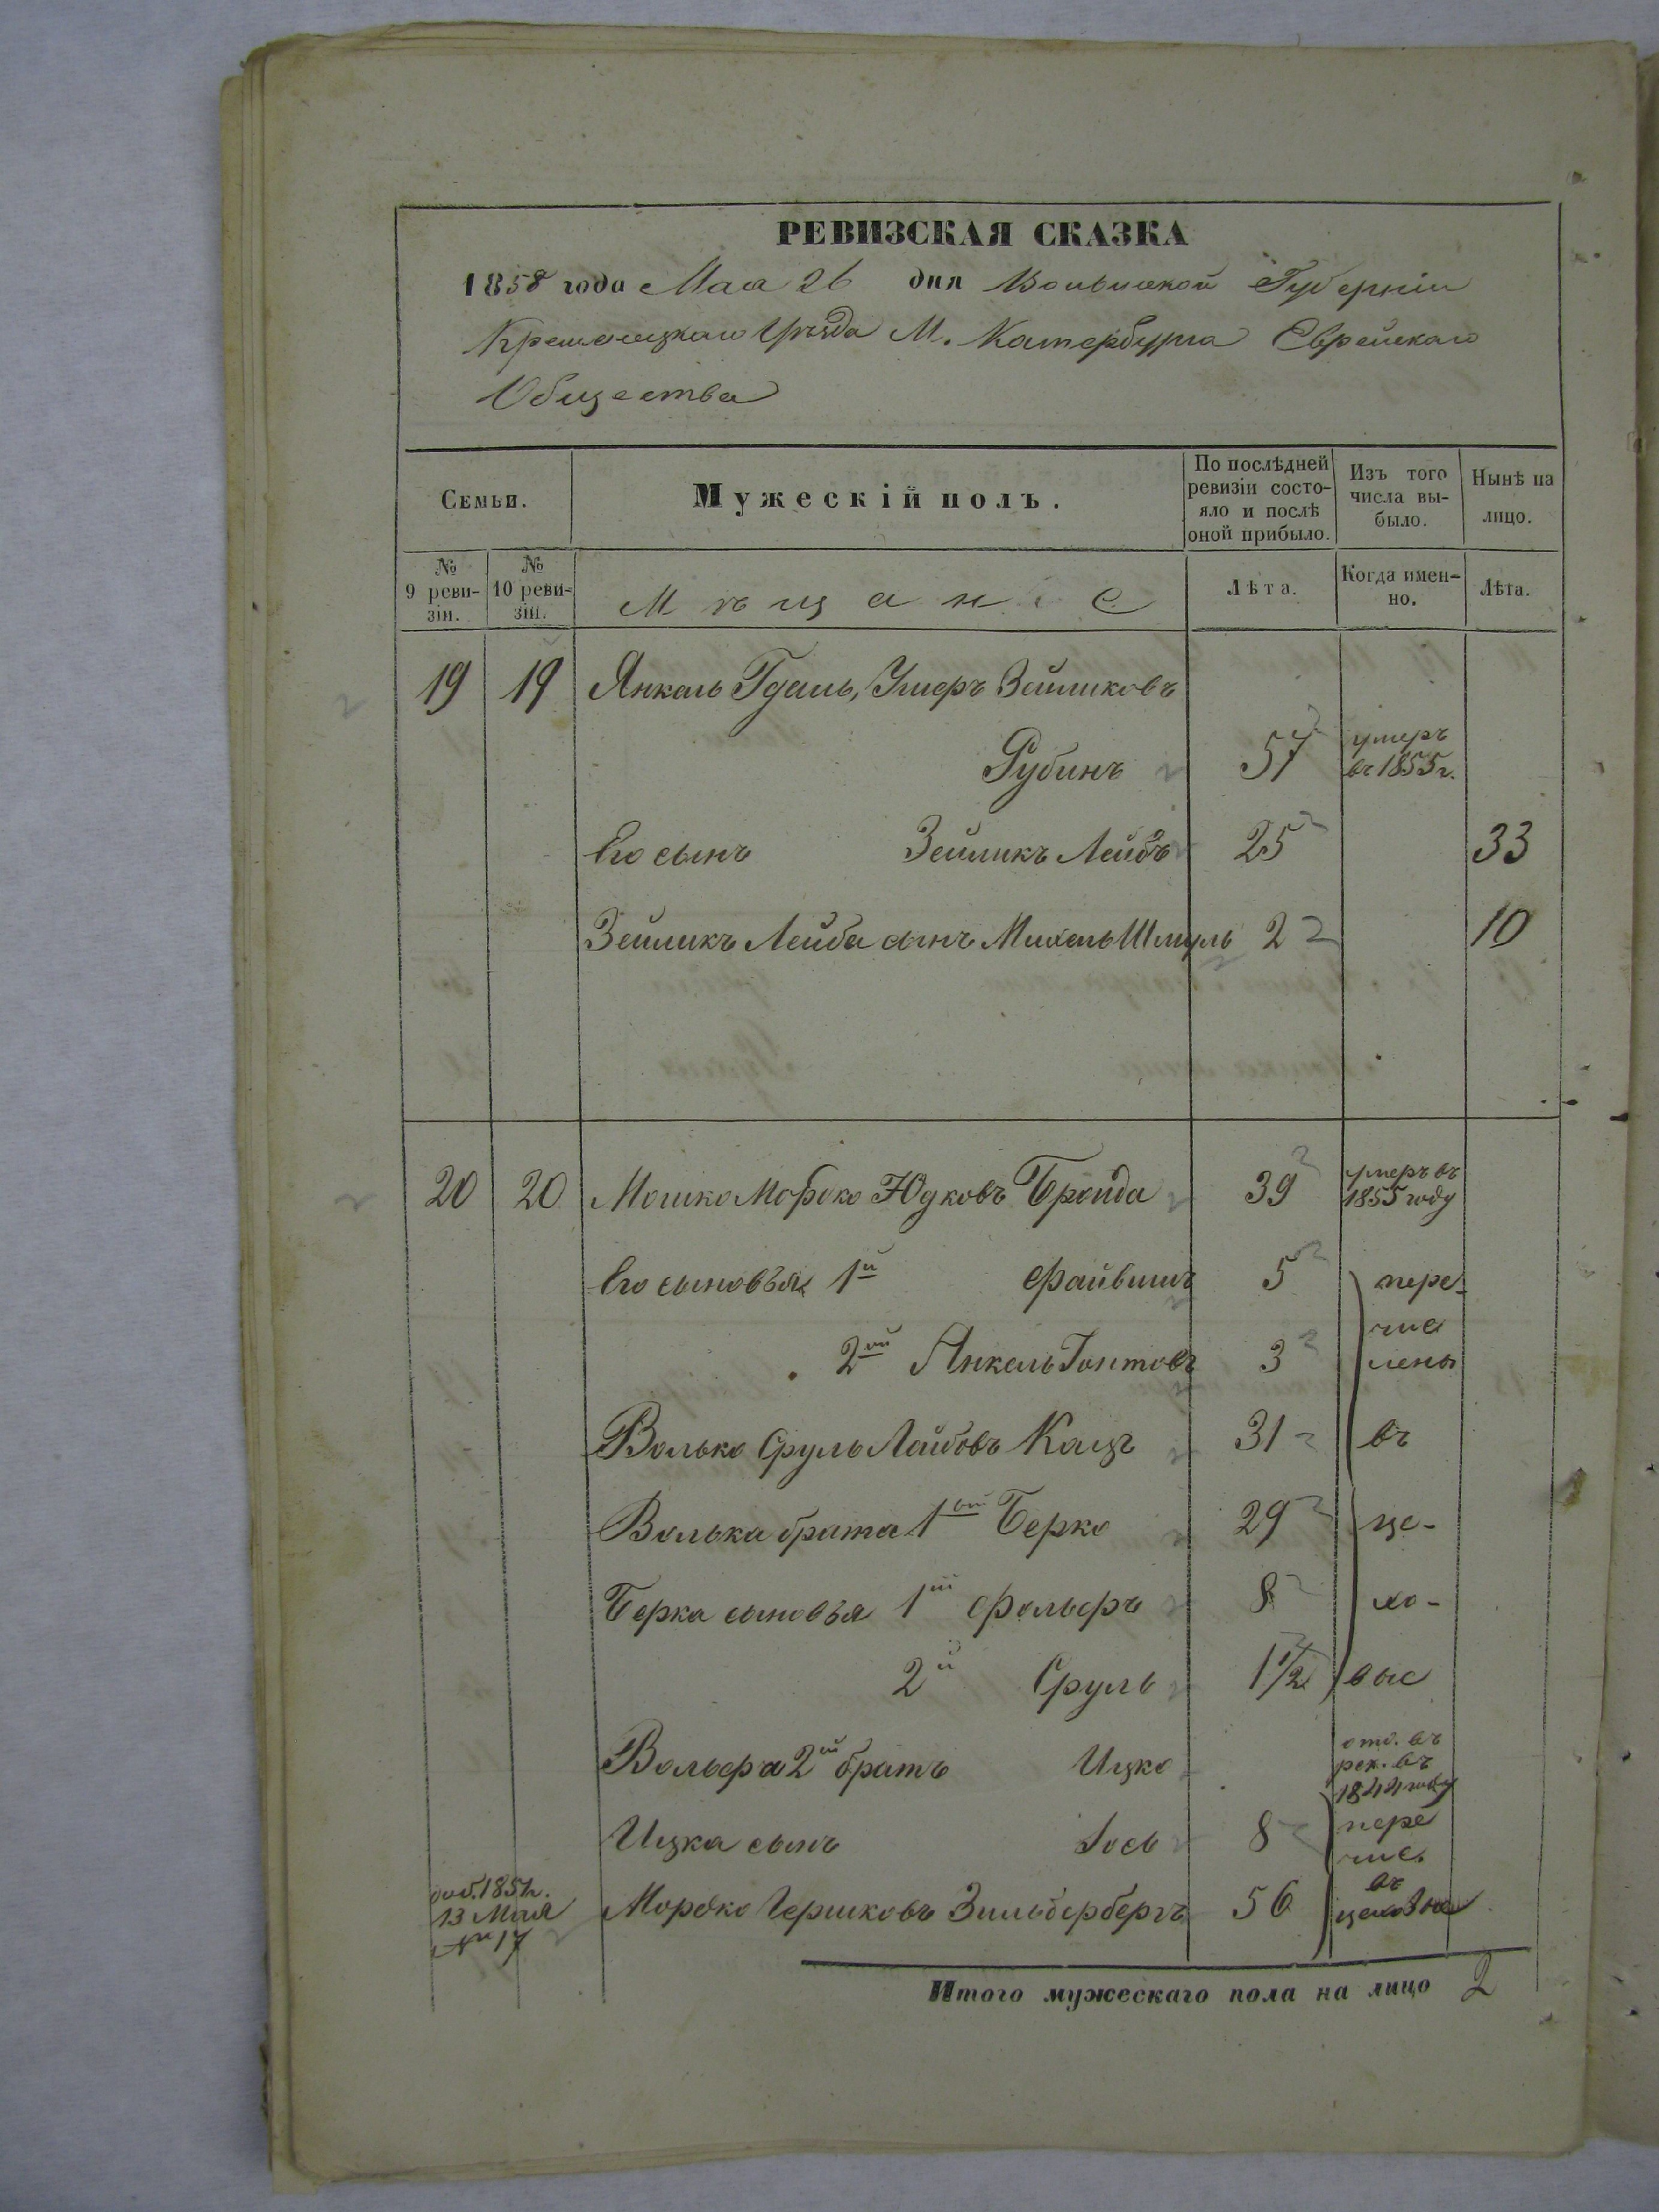 РЕВИЗСКАЯ СКАЗКА
1858 года Мая 26 дня Волынской Губерніи
Кременецкаго Уѣзда М. Катербурга Еврейскаго
Общества
Семьи.
Мужескій полъ.
По послѣдней ревизіи состояло и послѣ оной прибыло.
Изъ того числа выбыло.
Нынѣ на лицо.
№ 9 ревизіи.
№ 10 ревизіи.
Мѣщане
Лѣта.
Когда именно.
Лѣта.
19 19 Янкель Гдаль, Умеръ Зейликовъ
Рубинъ 57 умеръ въ 1855 г.
Его сынъ Зейликъ Лейбъ 25 33
Зейликъ Лейба сынъ Михель Шмуль 2 10
20 20 Мошко Мордко Юдковъ Бройда 39 умеръ въ 1855 году
Его сыновья 1й Файвишъ 5 пере-
2ой Янкель 3 числены
Волько Сруль Лейбовъ Кацъ 31 въ
Волька брата 1ый Берко 29 це-
Берка сыновья 1ый 8 хо-
2й Сруль 1 1/2 вые
Вольфа 2ой братъ Ицко отд. въ рек. въ 1844 году
Ицка сынъ Іось 8 пере чис.
доб. 1851 г. 13 Мая № 17 Мордко Гершковъ Зильберберъ 56 въ цеховые
Итого мужескаго пола на лицо 2